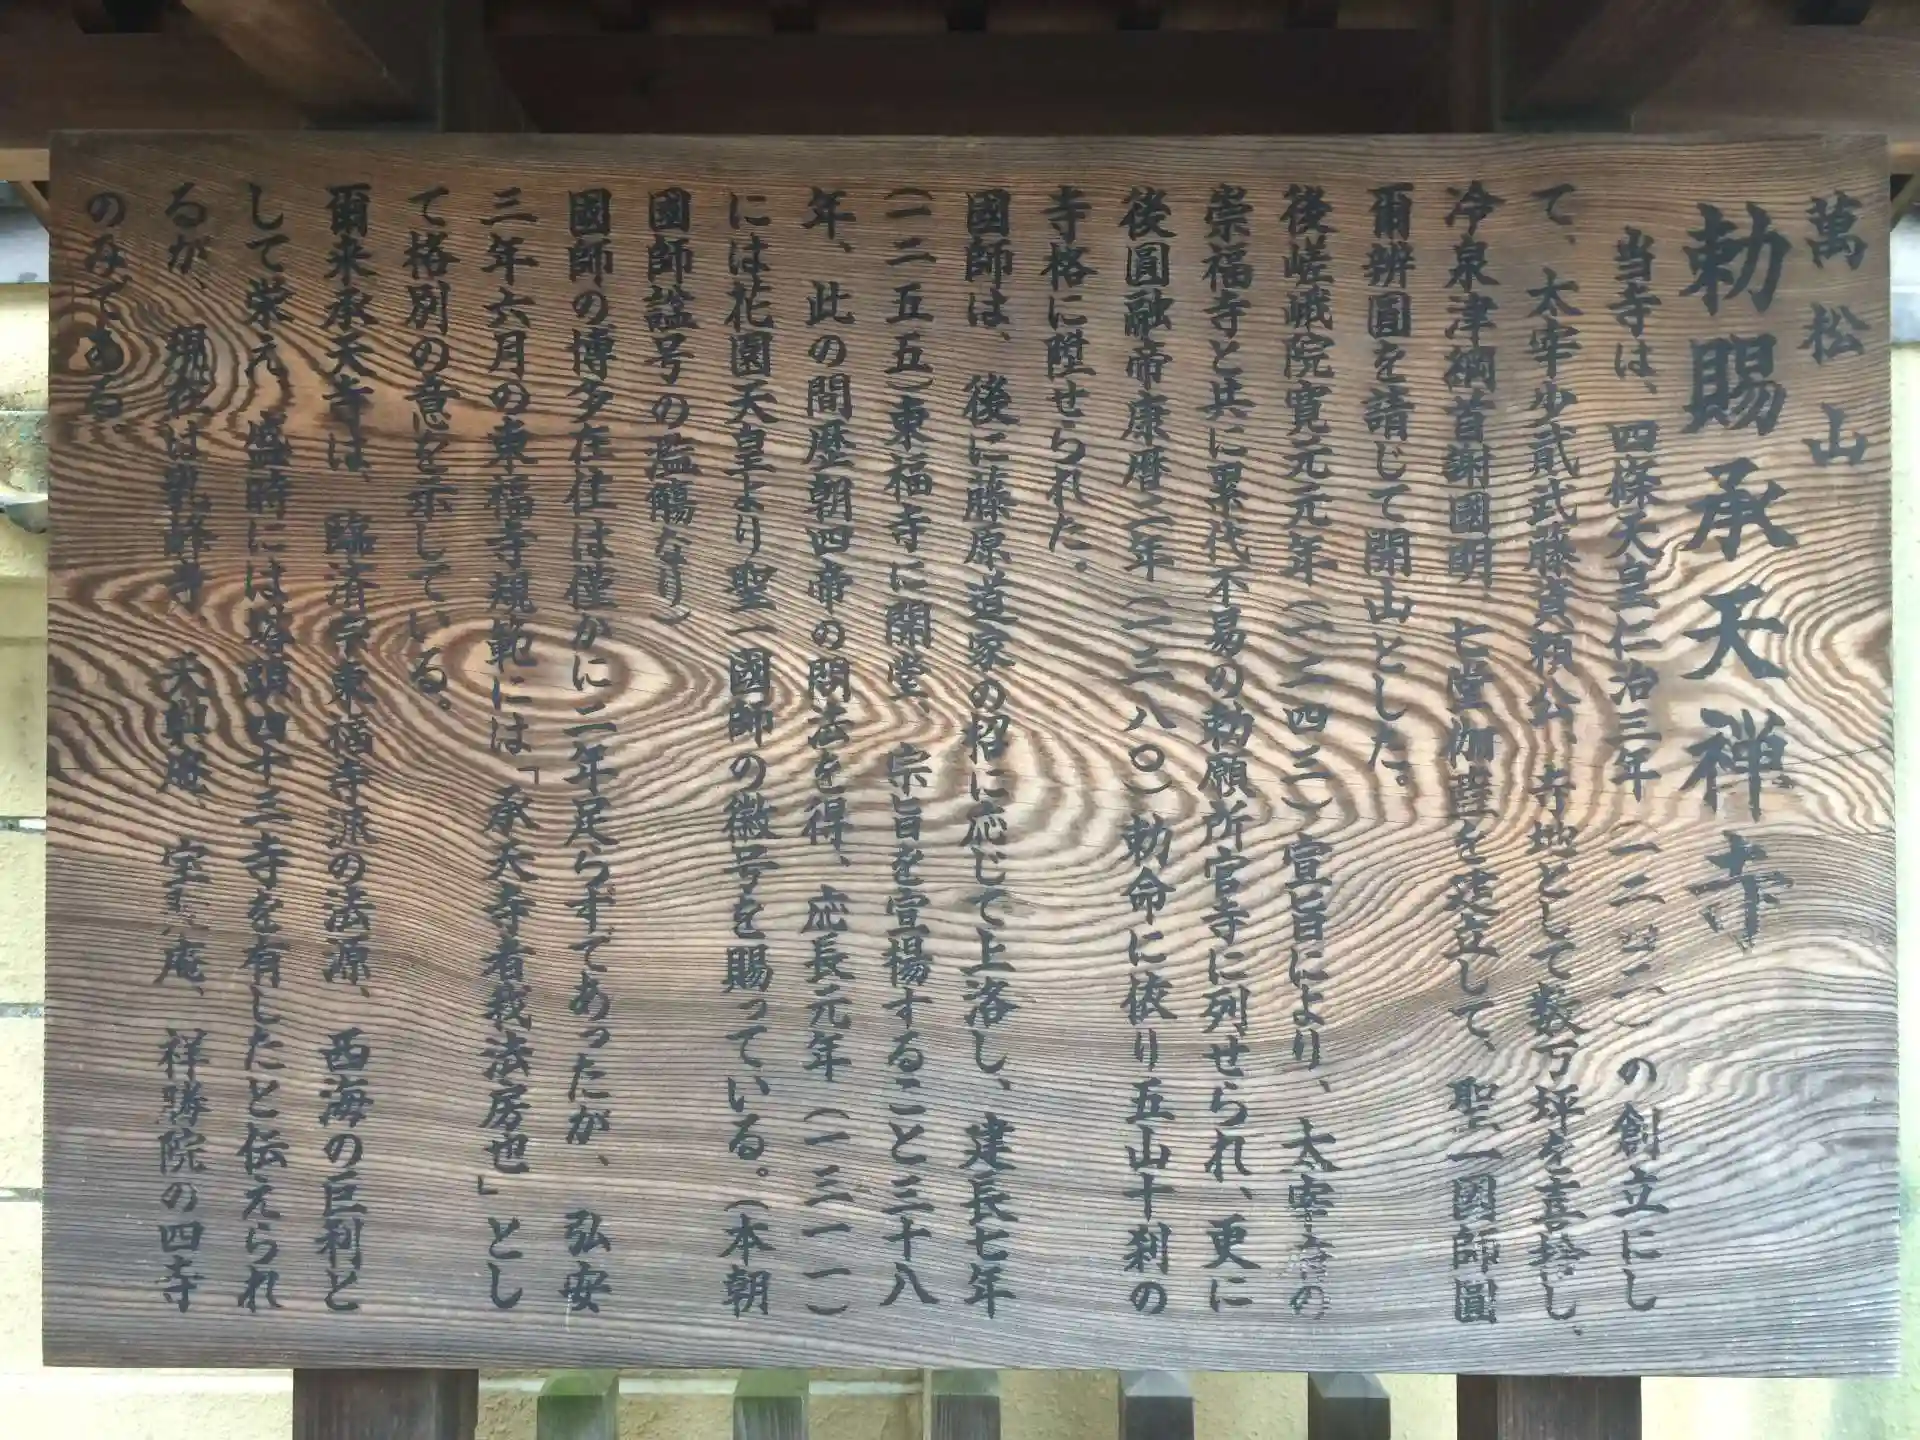 萬松山
勅賜承天禅寺
当寺は、四條天皇仁治三年(一二四二)の創立にし
て、太宰少貳武藤資頼公、寺地として数万坪を喜捨し、
冷泉津綱首謝國明 七堂伽藍を建立して、聖一國師圓
爾辨圓を請じて開山とした。
後嵯峨院寛元元年(一二四三)宣旨により、太宰府の
崇福寺と共に累代不易の勅願所官寺に列せられ、更に
後圓融帝康暦二年(一三八〇)勅命に依り五山十刹の
寺格に陞せられた。
國師は、後に藤原道家の招に応じて上洛し、建長七年
(一二五五)東福寺に開堂、宗旨を宣揚すること三十八
年、此の間歴朝四帝の問法を得、応長元年(一三一一)
には花園天皇より聖一國師の徽号を賜っている。(本朝
國師諡号の濫觴なり)
國師の博多在住は僅かに二年足らずであったが、弘安
三年六月の東福寺規範には「承天寺者我法房也」とし
て格別の意を示している。
爾来承天寺は、臨済宗東福寺派の法源、西海の巨刹と
して栄え、盛時には塔頭四十三寺を有したと伝えられ
るが、現在は乳峰寺、天與庵、宝聚庵、祥勝院の四寺
のみである。